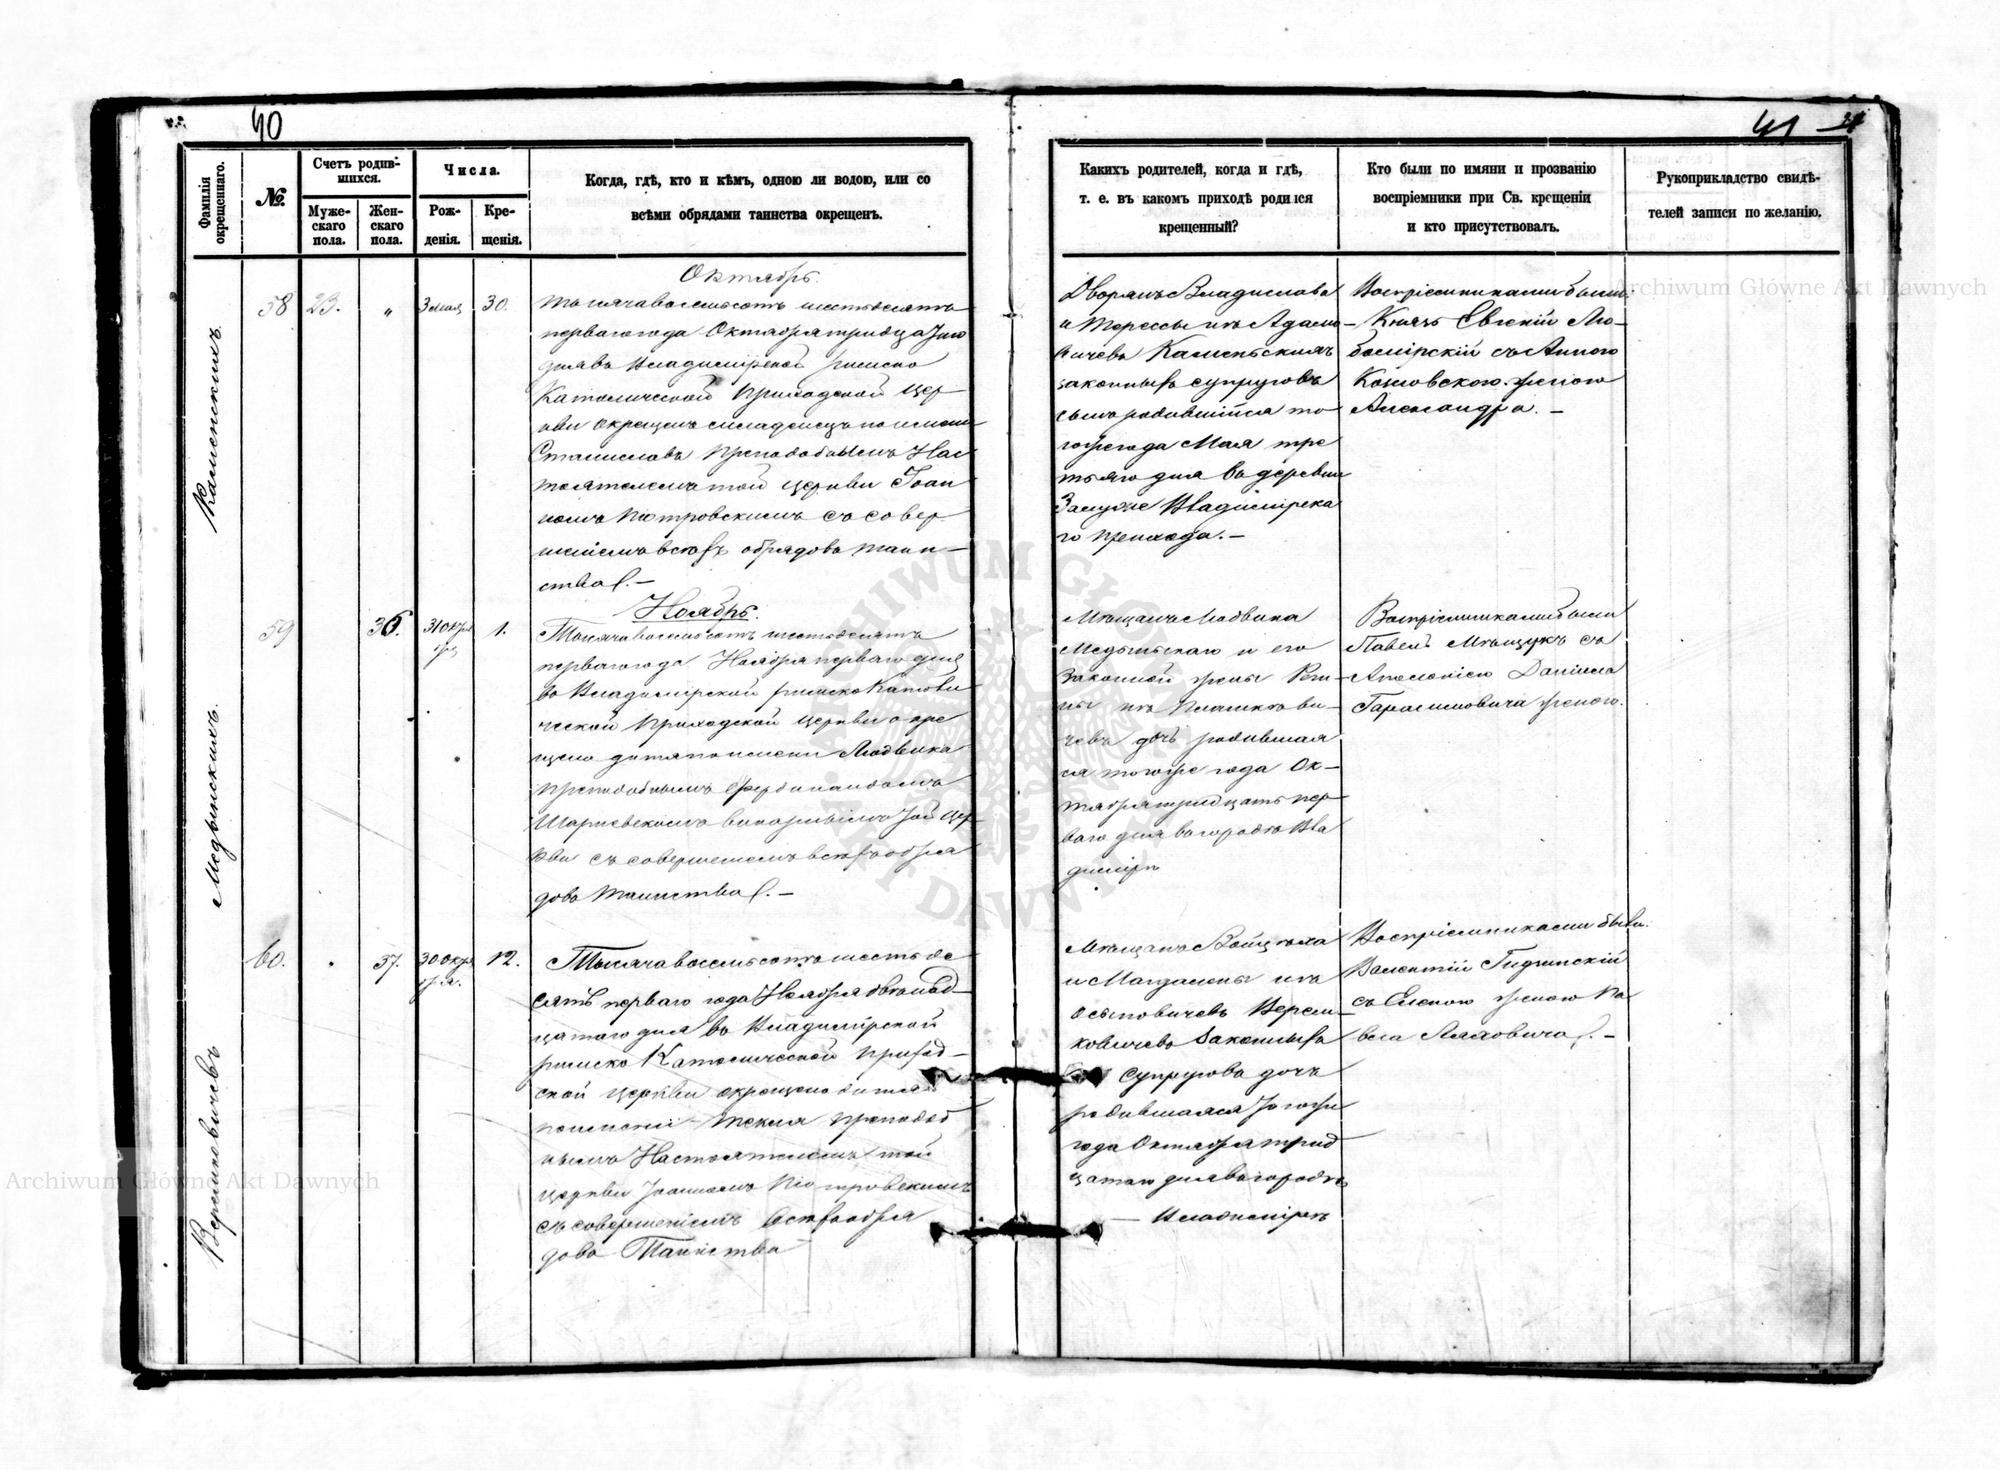 40
Фамилія окрещеннаго.
№.
Счетъ родив-
шихся.
Муже-
скаго
пола.
Жен-
скаго
пола.
Числа.
Рож-
денія.
Кре-
щенія.
Когда, гдѣ, кто и кѣмъ, одною ли водою, или со
всѣми обрядами таинства окрещенъ.
Каменскихъ.
58
23.
"
3 мая
30.
Октябрь.
тысяча восемьсотъ шестьдесятъ
перваго года Октября тридцатаго
дня въ Владимірской римско
Католической Приходской Цер-
кви окрещенъ младенецъ по имени
Станиславъ Преподобнымъ Нас
тоятелемъ той Церкви Іоан
номъ Піотровскимъ съ совер
шеніемъ всѣхъ обрядовъ таин-
ства
Медынскихъ.
59
36.
31 октя
бря
1.
Ноябрь.
Тысяча восемьсотъ шестьдесятъ
перваго года Ноября перваго дня
въ Владимірской римско Католи
ческой Приходской Церкви окре
щено дитя по имени Людвика
Преподобнымъ Фердинандомъ
викарныімъ той Цер-
кви съ совершеніемъ всѣхъ обря
довъ таинства
Веремковичевъ
60.
37.
30 октя
бря.
12.
Тысяча восемьсотъ шестьде
сятъ перваго года Ноября двѣнад-
цатаго дня въ Владимірской
римско Католической приход-
ской церкви окрещено дитя
по имени Текля Преподоб
нымъ Настоятелемъ той
церкви Іоанномъ Піотровскимъ
съ совершеніемъ всѣхъ обря
довъ Таинства
41
Какихъ родителей, когда и гдѣ,
т. е. въ какомъ приходѣ родился
крещенный?
Кто были по имяни и прозванію
воспріемники при Св. крещеніи
и кто присутствовалъ.
Рукоприкладство свидѣ-
телей записи по желанію.
Дворянъ Владислава
и Терессы изъ Адамо-
вичевъ Каменскихъ
законныхъ супруговъ
сынъ родившійся то-
гоже года Мая тре
тьяго дня въ деревни
Владимірска
го прихода. -
Воспріемниками были
Князь Евгеній Лю-
бомірскій съ Анною
Козловскою женою
Александра. -
Мѣщанъ Людвика
Медынскаго и его
законной жены
ны изъ
чевъ дочь родившая
ся тогоже года Ок-
тября тридцать пер-
ваго дня въ городѣ Вла
димірѣ
Воспріемниками были
Павелъ съ
Аполоніею Даніила
Гарасимовича женою.
Мѣщанъ Войцѣха
и Магдалены изъ
Осиповичевъ Верем-
ковичевъ Законныхъ
Супруговъ дочь
родившаяся тогоже
года Октября трид
цатаго дня въ городѣ
- Владимірѣ
Воспріемниками были.
Валентій Гидзинскій
съ Еленою женою Па
вела Ляховича. -
Archiwum Główne Akt Dawnych
Archiwum Główne Akt Dawnych
ARCHIWUM GŁÓWNE AKT DAWNYCH